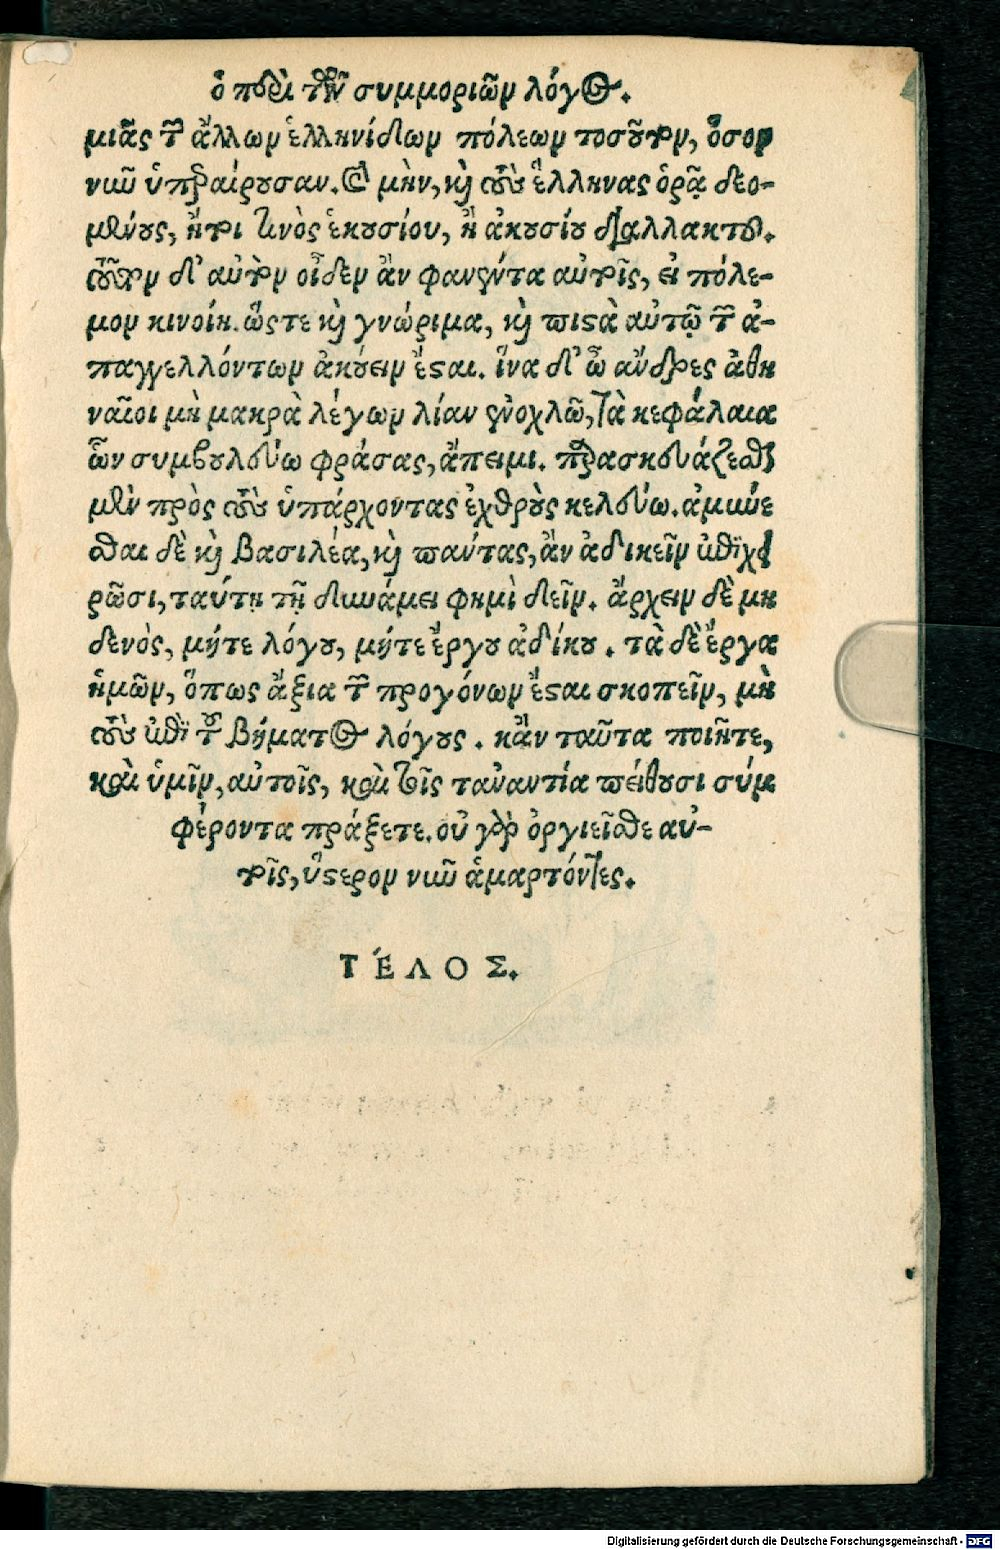 ὁ περὶ τῶν συμμοριῶν λόγος.
μιᾶς τῶν ἄλλων ἑλληνίδων πόλεων τοσοῦτον, ὅσον
νῦν ὑπεραίρουσαν. οὐ μὴν, καὶ τοὺς ἕλληνας ὁρᾷ δεο-
μένους, ἤτοι τινὸς ἑκουσίου, ἢ ἀκουσίου διαλλακτοῦ.
τοῦτον δ' αὐτὸν οἶδεν ἂν φανέντα αὐτοῖς, εἰ πόλε-
μον κινοίη. ὥστε καὶ γνώριμα, καὶ πιστὰ αὐτῷ τῶν ἀ-
παγγελλόντων ἀκούειν ἔσται. ἵνα δ' ὦ ἄνδρες ἀθη
ναῖοι μὴ μακρὰ λέγων λίαν ἐνοχλῶ, τὰ κεφάλαια
ὧν συμβουλεύω φράσας, ἄπειμι. παρασκευάζεσθαι
μὲν πρὸς τοὺς ὑπάρχοντας ἐχθροὺς κελεύω. ἀμύνε
σθαι δὲ καὶ βασιλέα, καὶ πάντας, ἂν ἀδικεῖν ἐπιχει
ρῶσι, ταύτῃ τῇ δυνάμει φημὶ δεῖν. ἄρχειν δὲ μη
δενὸς, μήτε λόγου, μήτε ἔργου ἀδίκου. τὰ δὲ ἔργα
ἡμῶν, ὅπως ἄξια τῶν προγόνων ἔσται σκοπεῖν, μὴ
τοὺς ἐπὶ τοῦ βήματος λόγους. κἂν ταῦτα ποιῆτε,
καὶ ὑμῖν, αὐτοῖς, καὶ τοῖς τἀναντία πείθουσι σύμ
φέροντα πράξετε. οὐ γὰρ ὀργιεῖσθε αὐ-
τοῖς, ὕστερον νῦν ἁμαρτόντες.
ΤΈΛΟΣ.
Digitalisierung gefördert durch die Deutsche Forschungsgemeinschaft - DFG